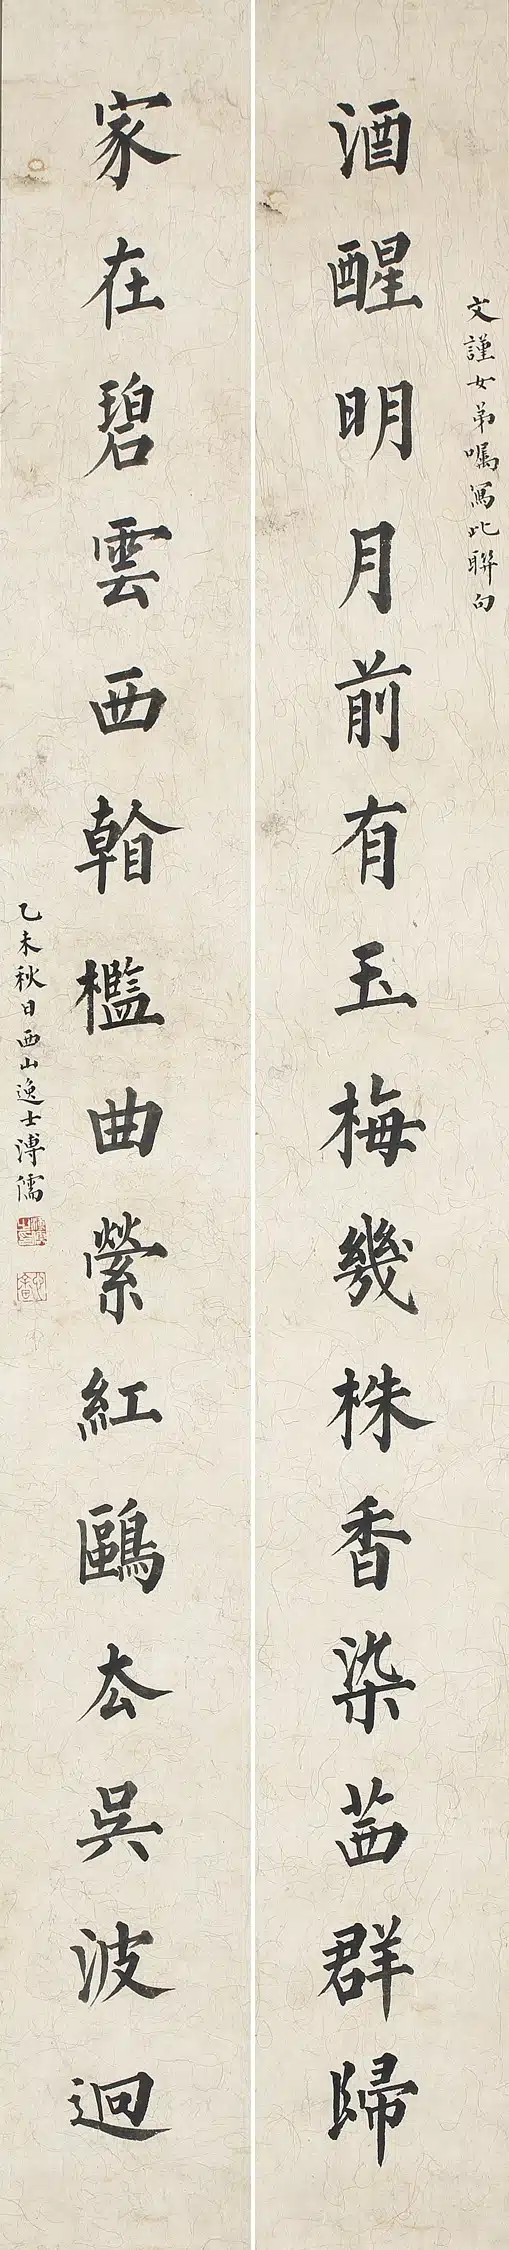 文謹女弟囑寫此聯句
酒醒明月前有玉梅幾株香染茜群歸
家在碧雲西檻曲縈紅鷗厺吳波迴
乙未秋日西山逸士溥儒